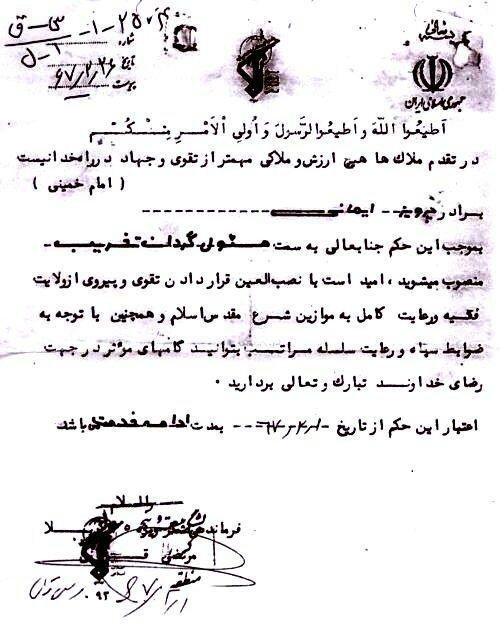 شماره
تاریخ ۶۷/۲/۲۶
پیوست
جمهوری اسلامی ایران
اَطیعُوا اللّهَ و اَطیعُوا الرَّسُولَ وَ اُولِی الْاَمْرِ مِنْكُمْ
در تقدم ملاك ها هیچ ارزش و ملاكی مهمتر از تقوی و جهاد در راه خدا نیست
( امام خمینی )
برادر پرویز -- ایمانی
بموجب این حكم جنابعالی به سمت مسئول گردان تخریب -
منصوب میشوید ، امید است با نصب‌العین قرار دادن تقوی و پیروی از ولایت
فقیه و رعایت كامل به موازین شرع مقدس اسلام و همچنین با توجه به
ضوابط سپاه و رعایت سلسله مراتب بتوانید گامهای مؤثر در جهت
رضای خداوند تبارك و تعالی بردارید .
اعتبار این حكم از تاریخ بمدت ادامه خدمت می باشد
والسلام
فرمانده
مرتضی
منطقه